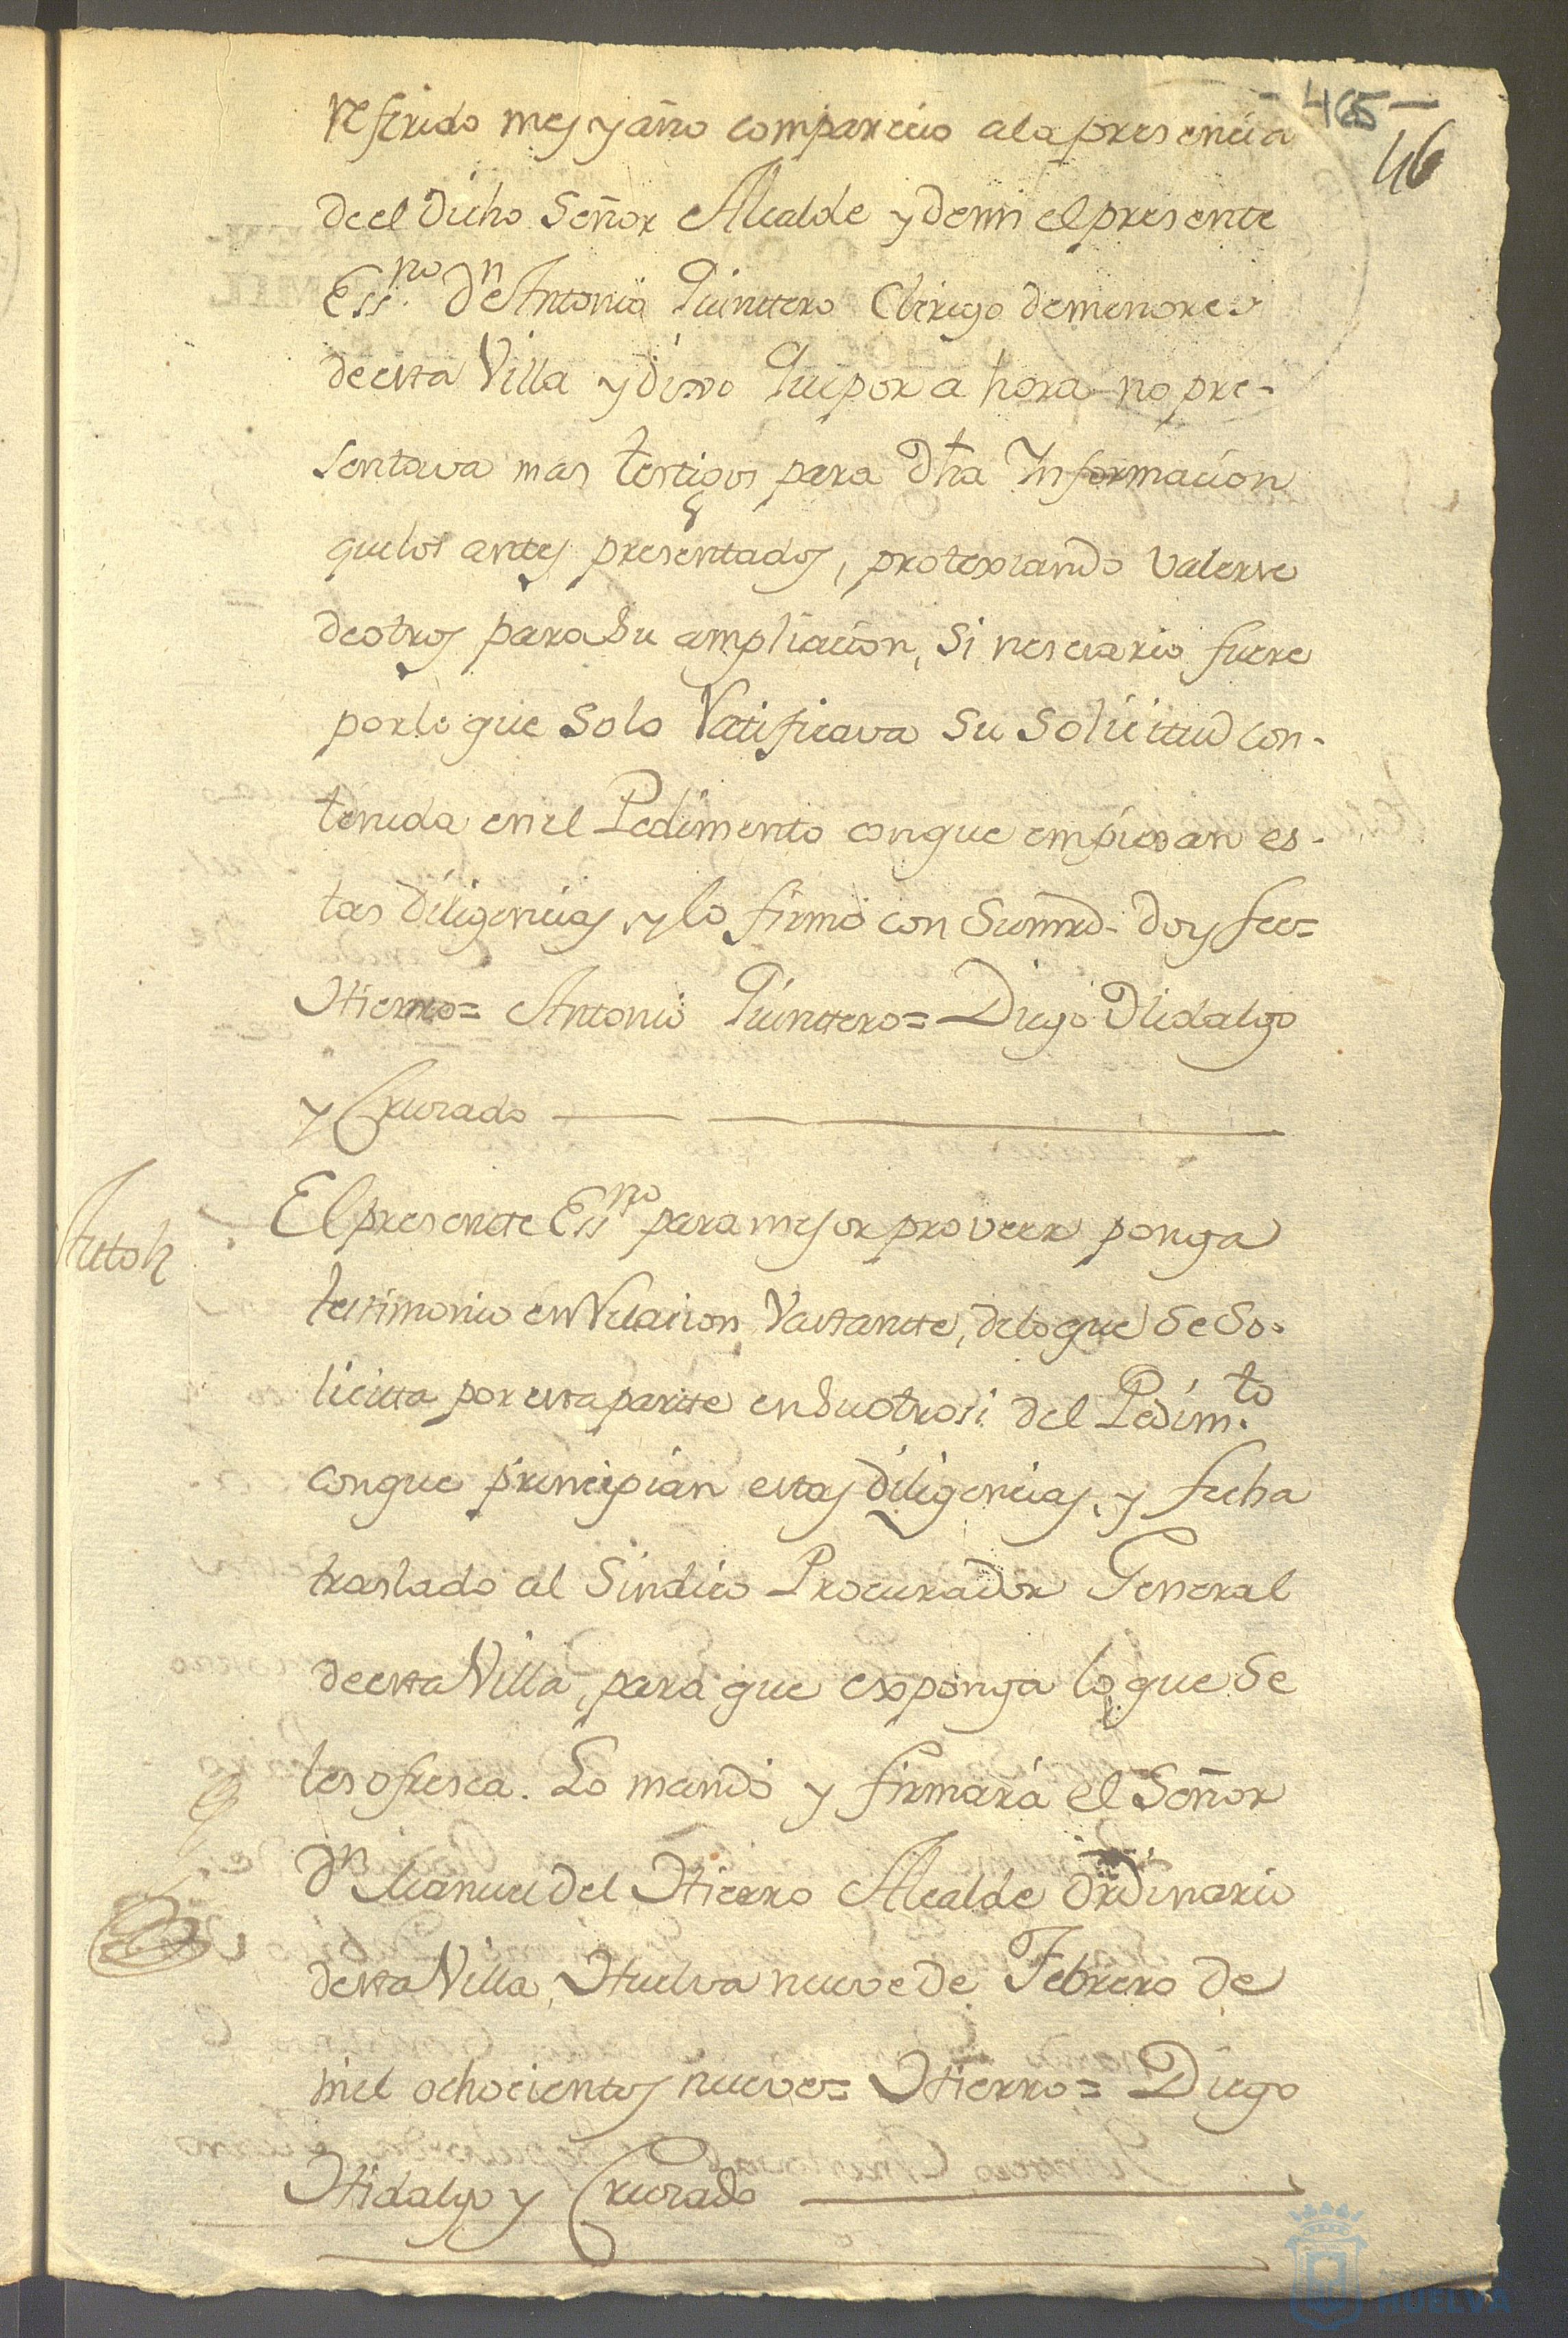 -465-
46
referido mes y año comparecio ala presencia
de el dicho Señor Alcalde y demi el presente
Essno. Dn Antonio Quinttero Clerigo de menores
de esta Villa y dixo Que por a hora no pre-
sentava mas testigos para dha Informacion
que los antes presentados, protextando valerse
de otros para su ampliacion, si nesesario fuere
por lo que solo Ratificava su solicittud con-
tenida en el Pedimento con que empiesan es-
tas diligencias, y lo firmó con su mrd. doy fee=
Hierro= Antonio Quinttero= Diego Hidalgo
y Cruzado
Auto
El presentte Essno para mejor proveer ponga
testimonio en Relacion Vastantte, delo que se so-
licitta por esta partte en su otrosi del Pedimto.
con que principian estas diligencias, y fecha
traslado al Sindico Procurador General
de esta Villa, para que exponga lo que se
les ofresca. Lo mandó y firmará el Señor
Dn Manuel del Hierro Alcalde Ordinario
desta Villa, Huelva nueve de Febrero de
mil ochocientos nueve= Hierro= Diego
Hidalgo y Cruzado
HUELVA